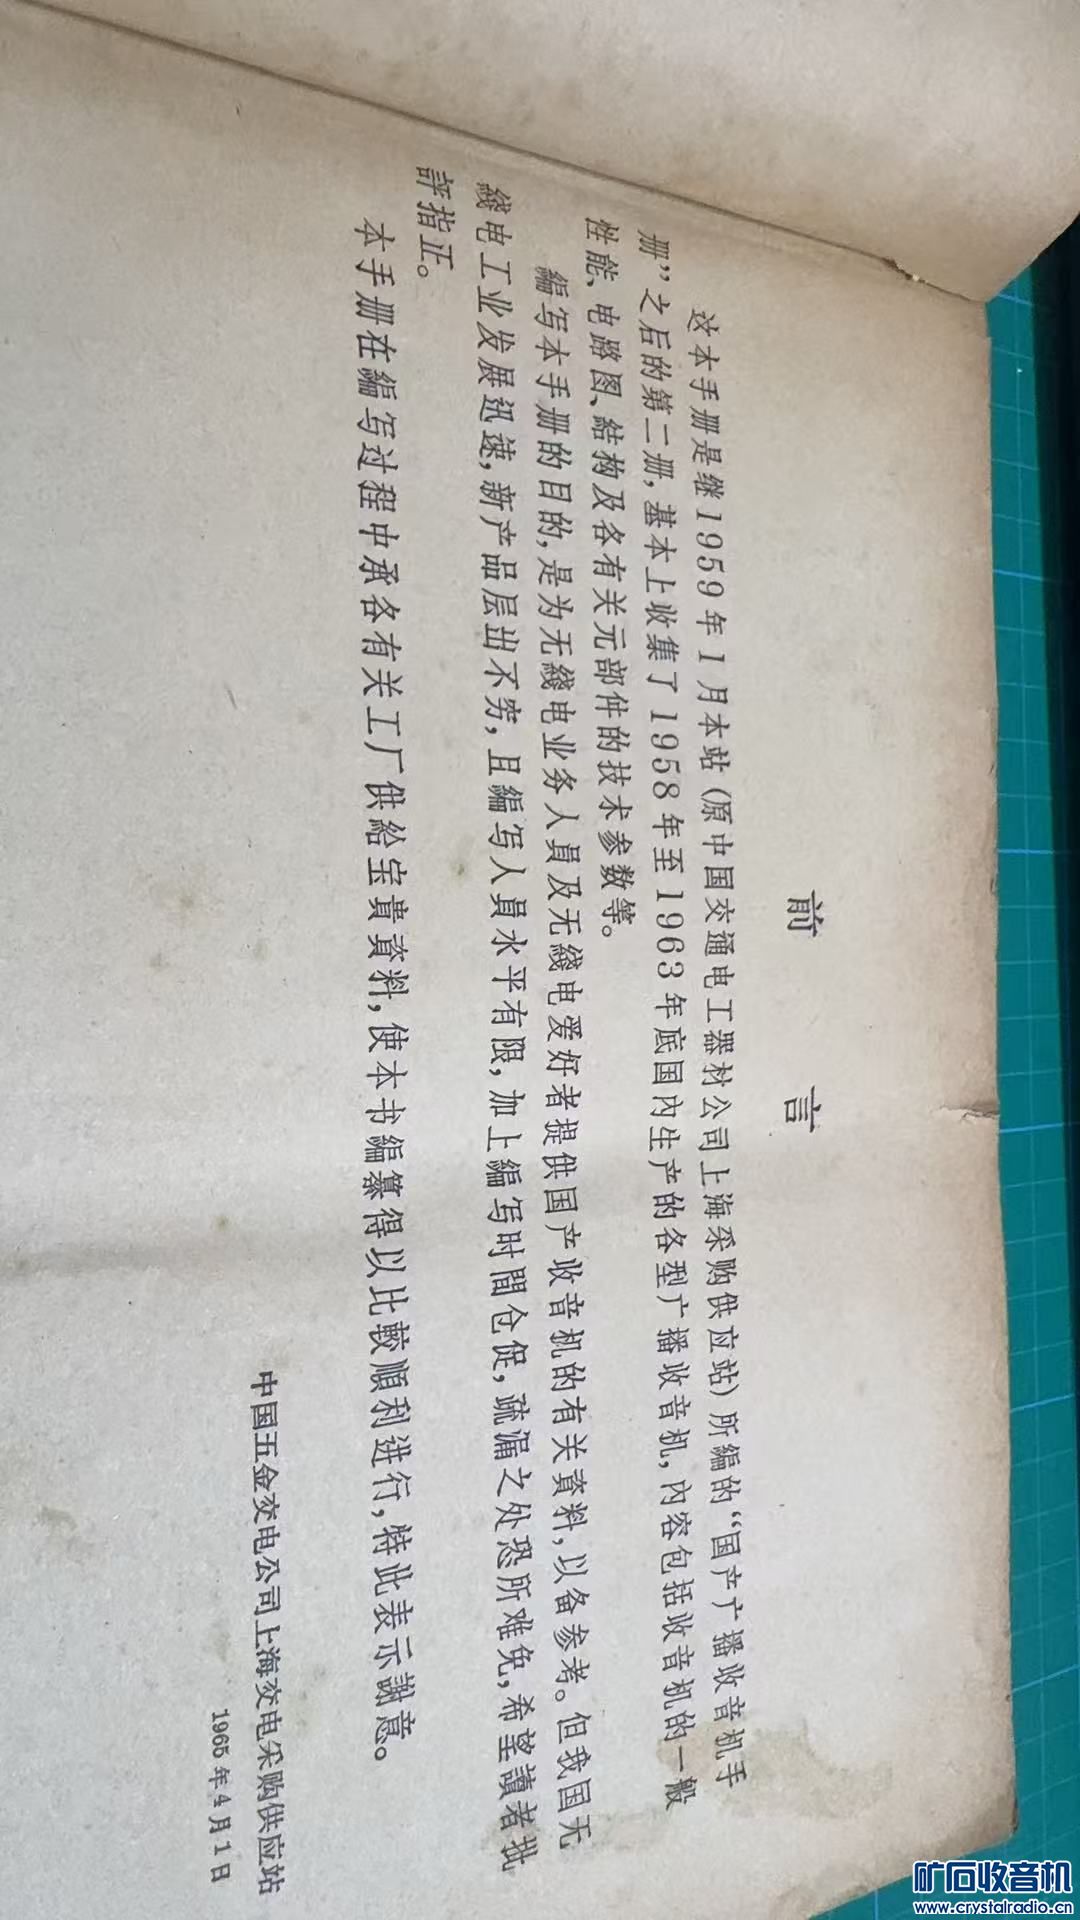 前言
这本手册是继1959年1月本站(原中国交通电工器材公司上海采购供应站)所編的“国产广播收音机手
册”之后的第二册,基本上收集了1958年至1963年底国内生产的各型广播收音机,内容包括收音机的一般
性能、电路图、結构及各有关元部件的技术参数等。
編写本手册的目的,是为无綫电业务人員及无线电爱好者提供国产收音机的有关資料,以备参考。但我国无
綫电工业发展迅速,新产品层出不穷,且編写人員水平有限,加上編写时間仓促,疏漏之处恐所难免,希望讀者批
評指正。
本手册在編写过程中承各有关工厂供給宝貴資料,使本书編纂得以比較順利进行,特此表示謝意。
中国五金交电公司上海交电采购供应站
1965年4月1日
矿石收音机
www.crystalradio.cn